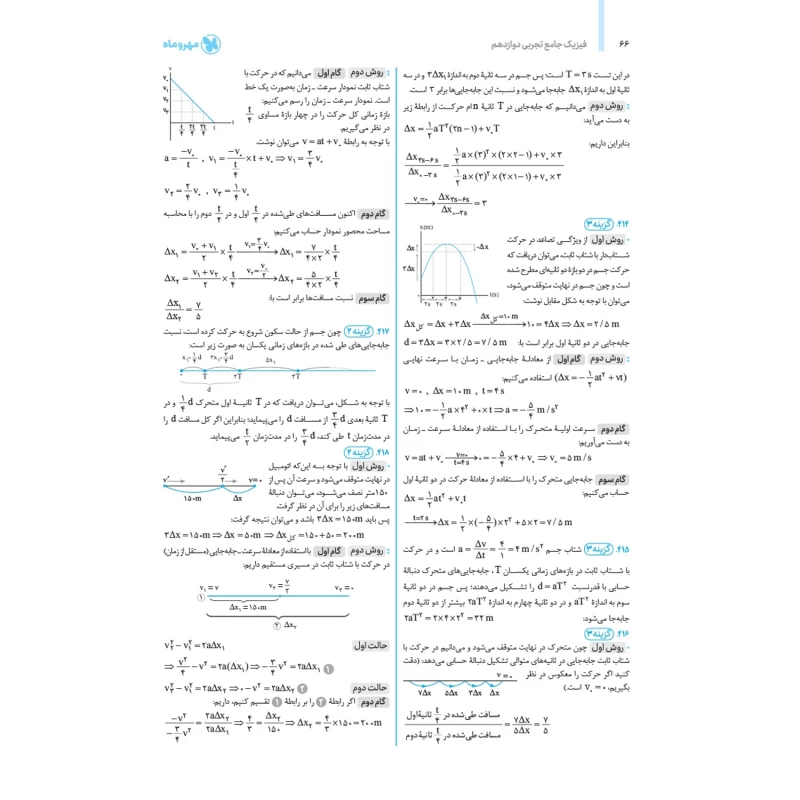 ۶۶
فیزیک جامع تجربی دوازدهم
مهروماه
در این تست T = ۳ s است؛ پس جسم در سه ثانیهٔ دوم به اندازهٔ ۳Δx₁ و در سه
ثانیهٔ اول به اندازهٔ Δx₁ جابه‌جا می‌شود و نسبت این جابه‌جایی‌ها برابر ۳ است.
روش دوم: می‌دانیم که جابه‌جایی در T ثانیهٔ nام حرکت از رابطهٔ زیر
به دست می‌آید:
Δx = ۱/۲ aT²(۲n − ۱) + v₀T
بنابراین داریم:
Δx۳s−۶s / Δx۰−۳s = (۱/۲ a×(۳)²×(۲×۲−۱)+v₀×۳) / (۱/۲ a×(۳)²×(۲×۱−۱)+v₀×۳)
v₀=۰ → Δx۳s−۶s / Δx۰−۳s = ۳
۴۱۴. گزینهٔ ۳
روش اول: از ویژگی تصاعد در حرکت
شتاب‌دار با شتاب ثابت، می‌توان دریافت که
حرکت جسم در دو بازهٔ دو ثانیه‌ای مطرح شده
است و چون جسم در نهایت متوقف می‌شود،
می‌توان با توجه به شکل مقابل نوشت:
x(m)
Δx
۳Δx
−Δx
۲s ۲s
t(s)
Δxکل = Δx + ۳Δx → Δxکل=۱۰m → ۱۰ = ۴Δx ⇒ Δx = ۲/۵ m
جابه‌جایی در دو ثانیهٔ اول برابر است با: d = ۳Δx = ۳×۲/۵ = ۷/۵ m
روش دوم: گام اول از معادلهٔ جابه‌جایی ـ زمان با سرعت نهایی
(Δx = −۱/۲ at² + vt) استفاده می‌کنیم:
v = ۰ , Δx = ۱۰ m , t = ۴ s
⇒ ۱۰ = −۱/۲ a×۴² + ۰×t ⇒ a = −۵/۴ m/s²
گام دوم سرعت اولیهٔ متحرک را با استفاده از معادلهٔ سرعت ـ زمان
به دست می‌آوریم:
v = at + v₀ → v=۰, t=۴s → ۰ = −۵/۴ ×۴ + v₀ ⇒ v₀ = ۵ m/s
گام سوم جابه‌جایی متحرک را با استفاده از معادلهٔ حرکت در دو ثانیهٔ اول
حساب می‌کنیم:
Δx = ۱/۲ at² + v₀t
t=۲s → Δx = ۱/۲ ×(−۵/۴)×۲² + ۵×۲ = ۷/۵ m
۴۱۵. گزینهٔ ۳ شتاب جسم a = Δv/Δt = ۴/۱ = ۴ m/s² است و در حرکت
با شتاب ثابت در بازه‌های زمانی یکسان T، جابه‌جایی‌های متحرک دنبالهٔ
حسابی با قدرنسبت d = aT² را تشکیل می‌دهند؛ پس جسم در دو ثانیهٔ
سوم به اندازهٔ aT² و در دو ثانیهٔ چهارم به اندازهٔ ۲aT² بیشتر از دو ثانیهٔ دوم
جابه‌جا می‌شود: ۲aT² = ۲×۴×۲² = ۳۲ m
۴۱۶. گزینهٔ ۳
روش اول: چون متحرک در نهایت متوقف می‌شود و می‌دانیم در حرکت با
شتاب ثابت جابه‌جایی در ثانیه‌های متوالی تشکیل دنبالهٔ حسابی می‌دهد: (دقت
کنید اگر حرکت را معکوس در نظر
بگیریم، v₀ = ۰ است.)
v = ۰
۷Δx ۵Δx ۳Δx Δx
مسافت طی‌شده در t/۴ ثانیهٔ اول / مسافت طی‌شده در t/۴ ثانیهٔ دوم = ۷Δx/۵Δx = ۷/۵
روش دوم: گام اول می‌دانیم که در حرکت با
شتاب ثابت نمودار سرعت ـ زمان به‌صورت یک خط
است. نمودار سرعت ـ زمان را رسم می‌کنیم:
بازهٔ زمانی کل حرکت را در چهار بازهٔ مساوی t/۴
در نظر می‌گیریم.
v
v₀
v₁
v₂
v₃
t/۴ ۲t/۴ ۳t/۴ t
با توجه به رابطهٔ v = at + v₀ می‌توان نوشت.
a = −v₀/t , v₁ = −v₀/t × t/۴ + v₀ ⇒ v₁ = ۳/۴ v₀
v₂ = ۲/۴ v₀ , v₃ = ۱/۴ v₀
گام دوم اکنون مسافت‌های طی‌شده در t/۴ اول و در t/۴ دوم را با محاسبه
مساحت محصور نمودار حساب می‌کنیم:
Δx₁ = (v₀ + v₁)/۲ × t/۴ → v₁=۳/۴v₀ → Δx₁ = ۷/(۴×۲) × t/۴
Δx₂ = (v₁ + v₂)/۲ × t/۴ → v₂=v₀/۲ → Δx₂ = ۵/(۴×۲) × t/۴
گام سوم نسبت مسافت‌ها برابر است با:
Δx₁/Δx₂ = ۷/۵
۴۱۷. گزینهٔ ۲ چون جسم از حالت سکون شروع به حرکت کرده است، نسبت
جابه‌جایی‌های طی شده در بازه‌های زمانی یکسان به صورت زیر است:
Δx₁
T ۲T ۳T
d
با توجه به شکل، می‌توان دریافت که در T ثانیهٔ اول متحرک ۱/۴ d و در
T ثانیهٔ بعدی ۳/۴ d از مسافت d را می‌پیماید؛ بنابراین اگر کل مسافت d را
در مدت‌زمان t طی کند، ۳/۴ d را در مدت‌زمان t/۲ می‌پیماید.
۴۱۸. گزینهٔ ۲
روش اول: با توجه به این‌که اتومبیل
در نهایت متوقف می‌شود و سرعت آن پس از
۱۵۰ متر نصف می‌شود، می‌توان دنبالهٔ
مسافت‌های زیر را برای آن در نظر گرفت.
v' v'/۲ v=۰
۱۵۰m Δx
پس باید ۳Δx = ۱۵۰m باشد و می‌توان نتیجه گرفت:
۳Δx = ۱۵۰m ⇒ Δx = ۵۰m ⇒ Δxکل = ۱۵۰+۵۰ = ۲۰۰m
روش دوم: گام اول با استفاده از معادلهٔ سرعت ـ جابه‌جایی (مستقل از زمان)
در حرکت با شتاب ثابت در مسیری مستقیم داریم:
v₁ = v v₂ = v/۲ v₃ = ۰
①
Δx₁ = ۱۵۰m
② Δx₂
حالت اول v₂² − v₁² = ۲aΔx₁
⇒ v²/۴ − v² = ۲a(Δx₁) ⇒ −۳/۴ v² = ۲aΔx₁ ①
حالت دوم v₃² − v₁² = ۲aΔx₂ ⇒ ۰ − v² = ۲aΔx₂ ②
گام دوم اگر رابطهٔ ② را بر رابطهٔ ① تقسیم کنیم، داریم:
−v² / −۳/۴ v² = ۲aΔx₂/۲aΔx₁ ⇒ ۴/۳ = Δx₂/۱۵۰ ⇒ Δx₂ = ۴/۳ ×۱۵۰ = ۲۰۰m